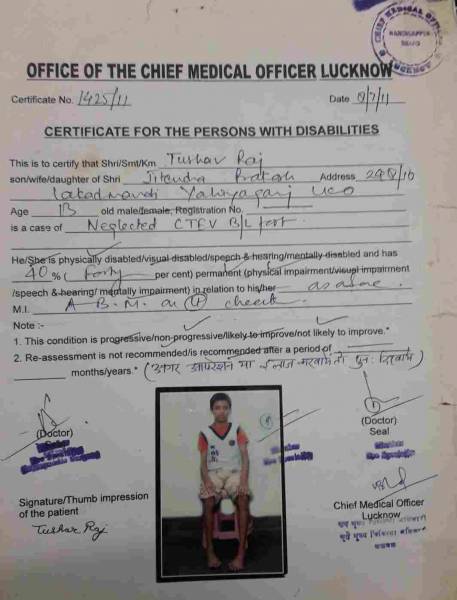 CHIEF MEDICAL OFFICER
OFFICE OF THE CHIEF MEDICAL OFFICER LUCKNOW
Certificate No. 1425/11 Date 8/7/11
CERTIFICATE FOR THE PERSONS WITH DISABILITIES
This is to certify that Shri/Smt/Km Tushar Raj
son/wife/daughter of Shri Jitendra Prakash Address
Yahiyaganj LKO
Age old male/female, Registration No.
is a case of Neglected CTEV B/L foot.
He/She is physically disabled/visual disabled/speech & hearing/mentally disabled and has
40 % ( Forty per cent) permanent (physical impairment/visual impairment
/speech & hearing/ mentally impairment) in relation to his/her as above.
M.I. A B.M. on cheek.
Note :-
1. This condition is progressive/non-progressive/likely to improve/not likely to improve.*
2. Re-assessment is not recommended/is recommended after a period of
months/years.* (अगर आपरेशन या ईलाज करवाये तो पुनः दिखायें)
(Doctor)
(Doctor)
Seal
Signature/Thumb impression
of the patient
Tushar Raj
Chief Medical Officer
Lucknow
मुख्य चिकित्सा अधिकारी
लखनऊ